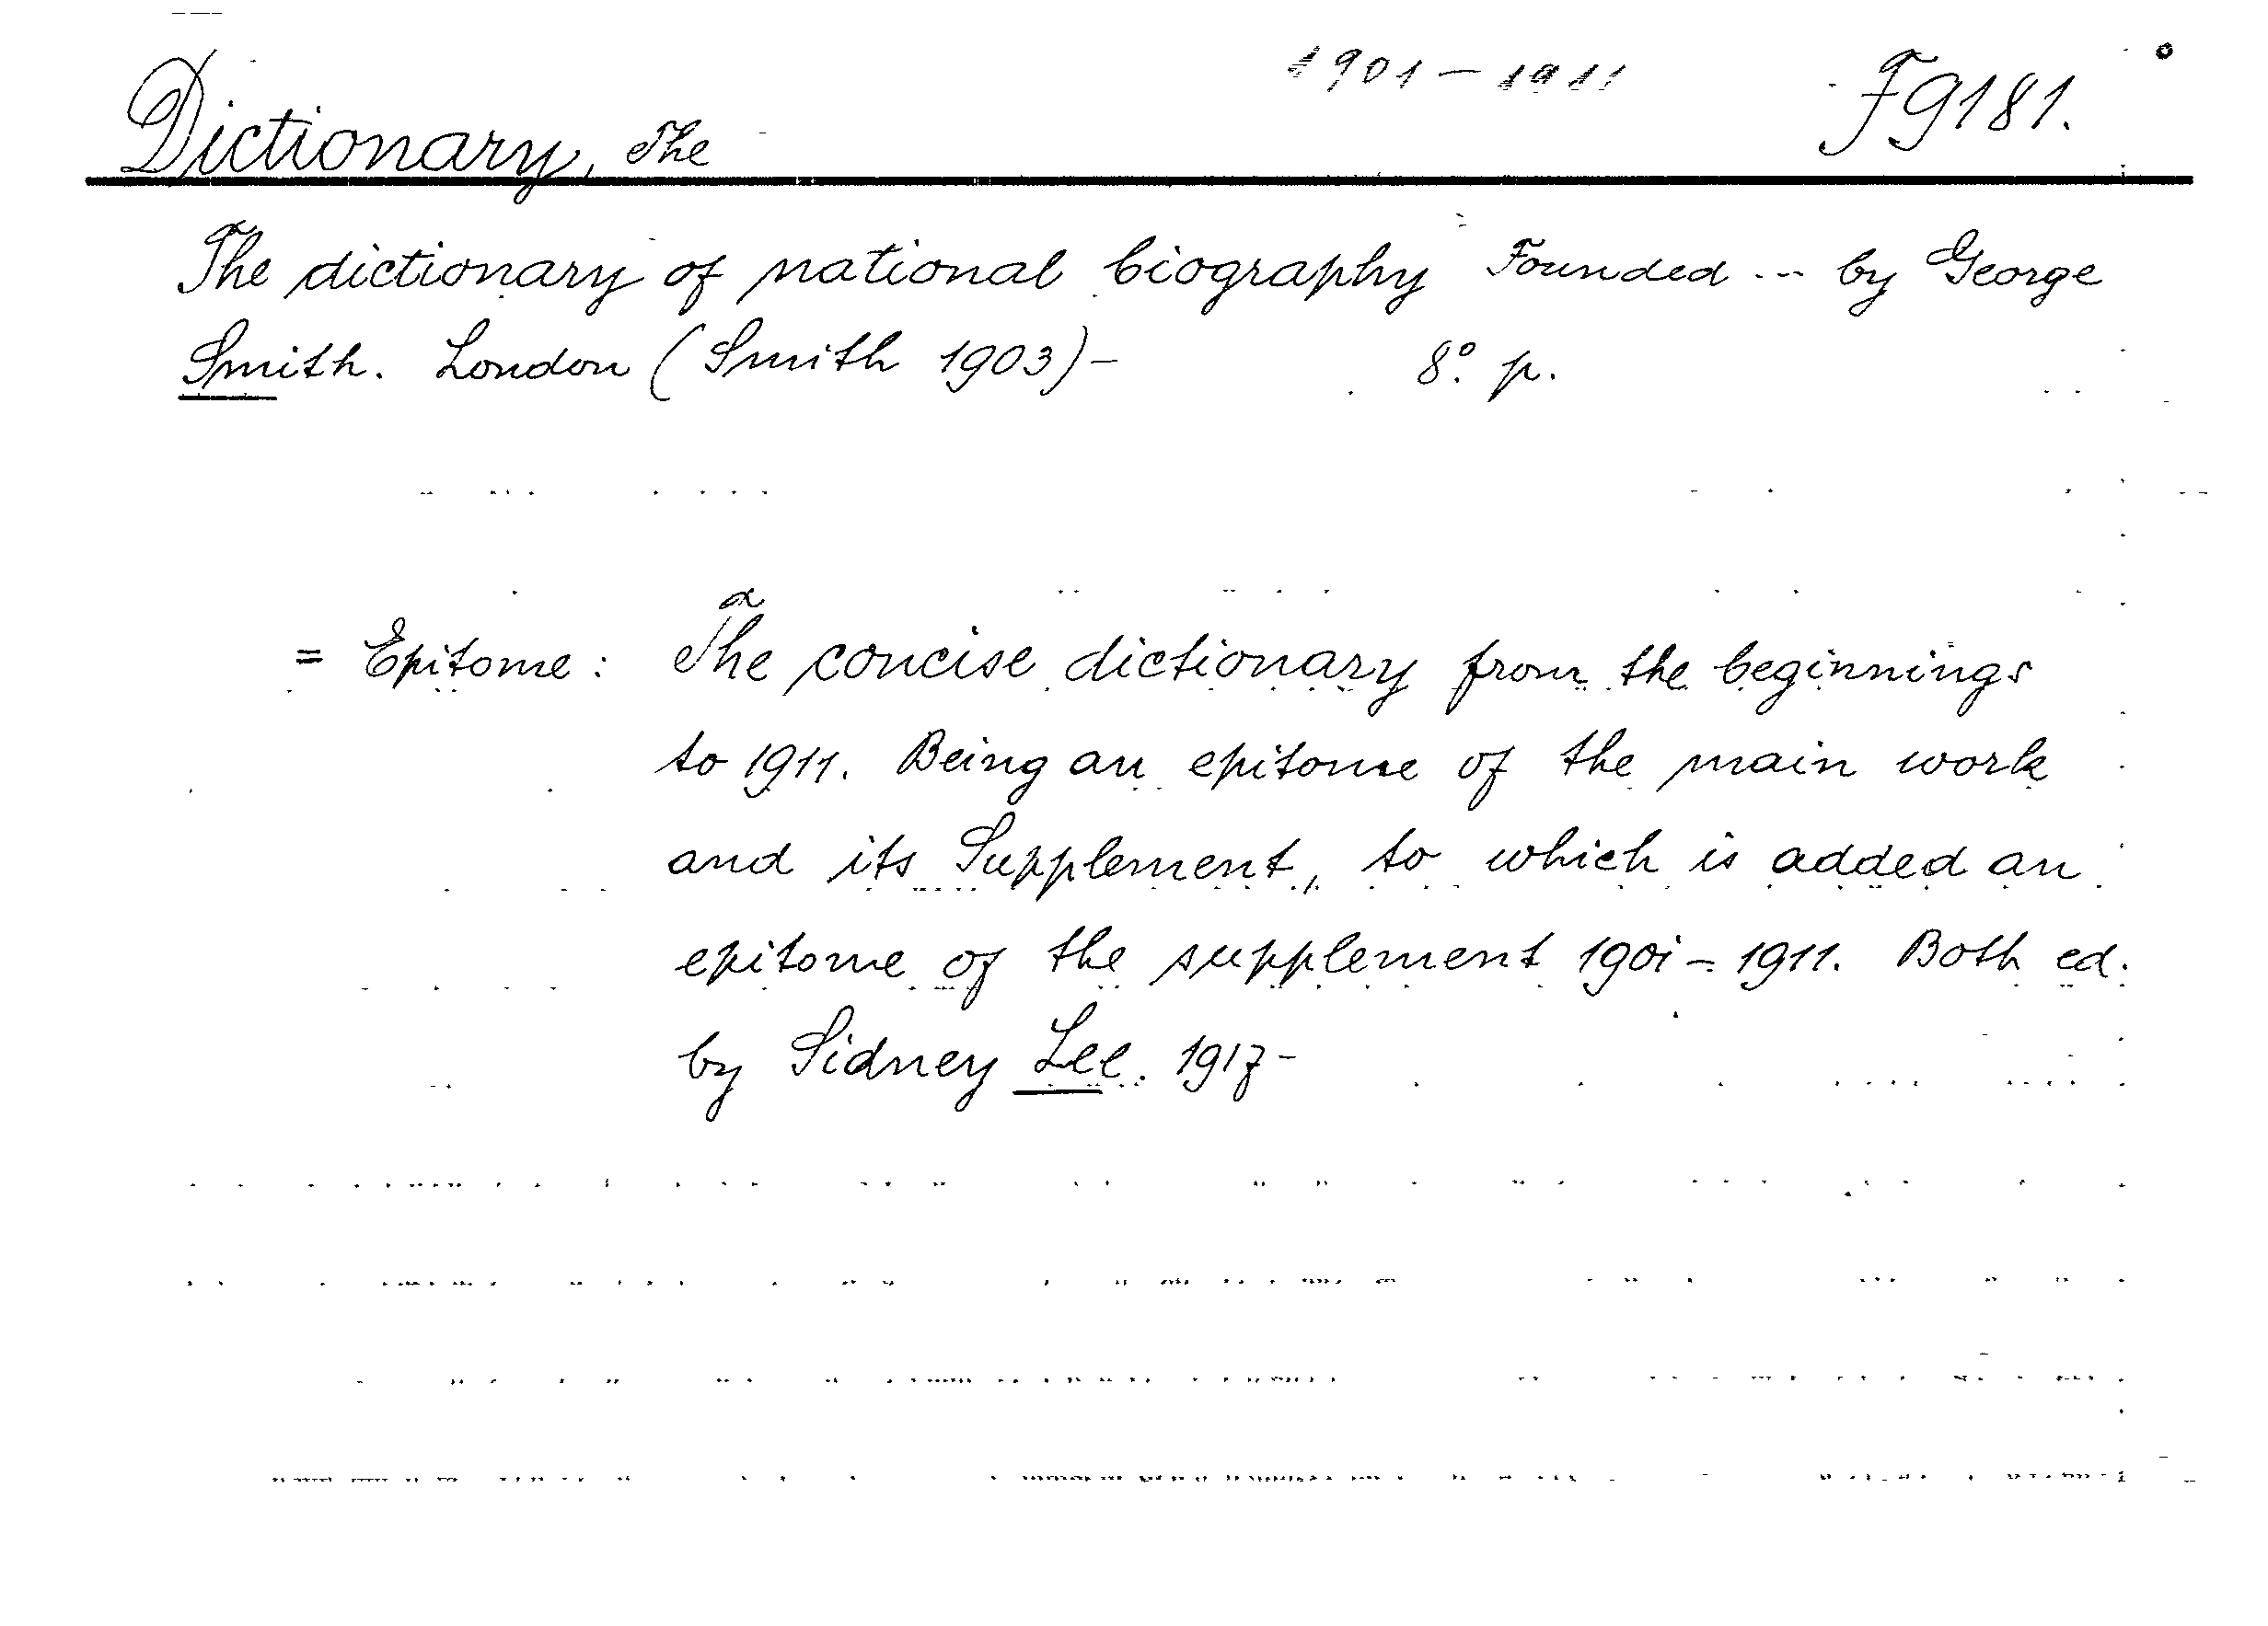 1901 – 1911
F9181.
Dictionary, The
The dictionary of national biography Founded ... by George
Smith. London (Smith 1903)– 8° p.
= Epitome: The concise dictionary from the beginnings
to 1911. Being an epitome of the main work
and its Supplement, to which is added an
epitome of the supplement 1901–1911. Both ed.
by Sidney Lee. 1917–